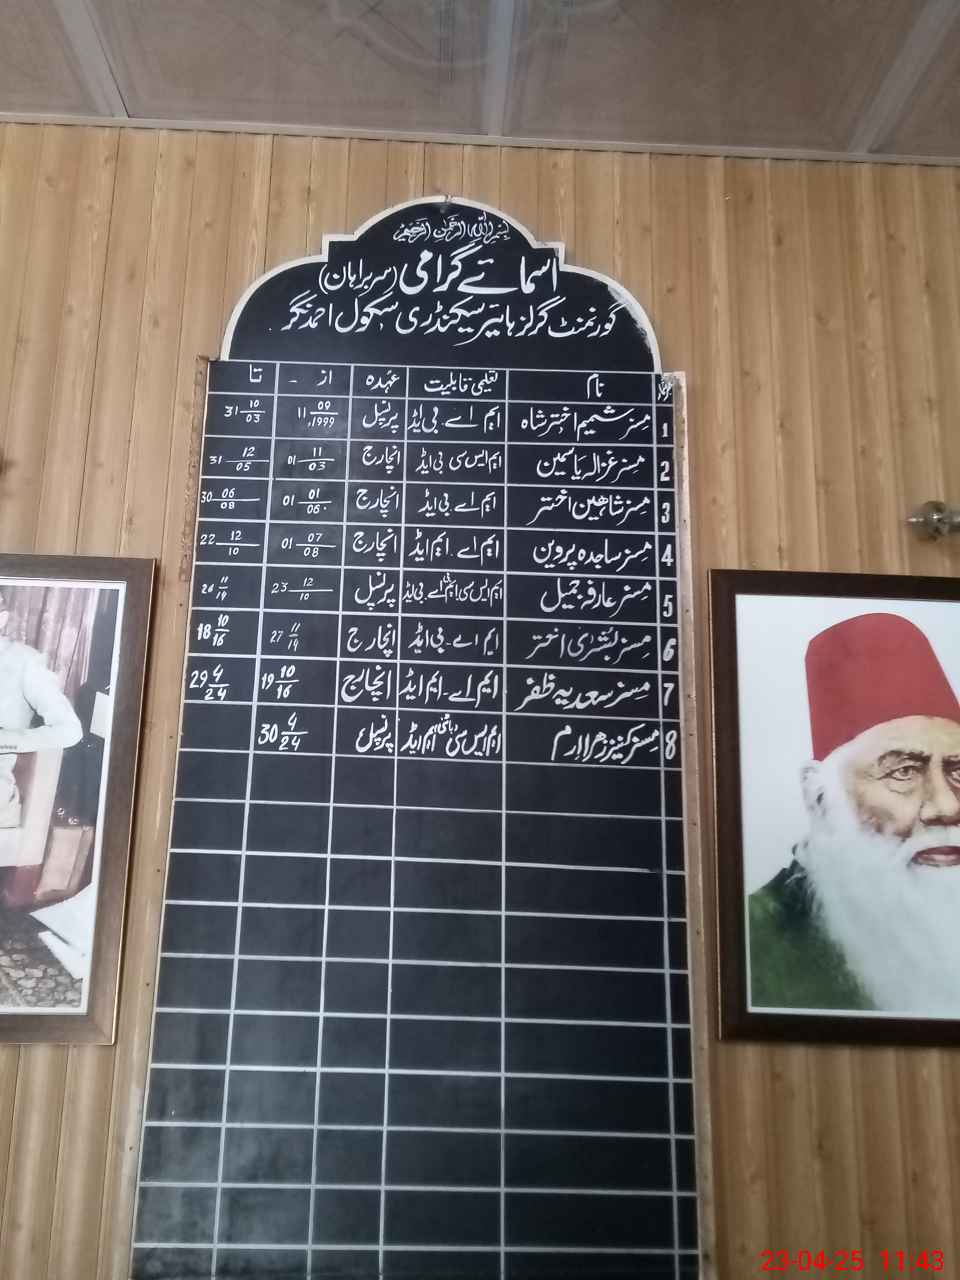 بسم اللہ الرحمٰن الرحیم
اسمائے گرامی (سربراہان)
گورنمنٹ گرلز ہائیر سیکنڈری سکول احمد نگر
نام تعلیمی قابلیت عہدہ از - تا
1 مسز شمیم اختر شاہ ایم اے - بی ایڈ پرنسپل 11 09/1999 31 10/03
2 مسز غزالہ یاسمین ایم ایس سی بی ایڈ انچارج 01 11/03 31 12/05
3 مسز شاھین اختر ایم اے بی ایڈ انچارج 01 01/06 30 06/08
4 مسز ساجدہ پروین ایم اے - ایم ایڈ انچارج 01 07/08 22 12/10
5 مسز عارفہ جمیل ایم ایس سی ایم اے بی ایڈ پرنسپل 23 12/10 11/14
6 مسز بشریٰ اختر ایم اے - بی ایڈ انچارج 27 11/14 18 10/16
7 مسز سعدیہ ظفر ایم اے - ایم ایڈ انچارج 19 10/16 29 4/24
8 مسز کنیز زھرا ارم ایم ایس سی ایم ایڈ پرنسپل 30 4/24
23-04-25 11:43